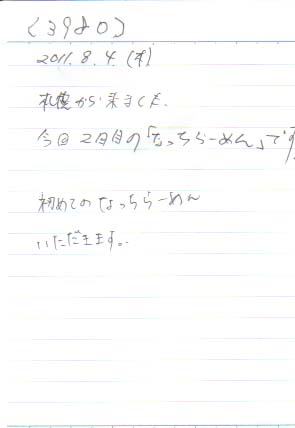 (3980)
2011.8.4.(木)
札幌から来ました.
今回2日目の「なっちらーめん」です
初めてのなっちらーめん
いただきます。